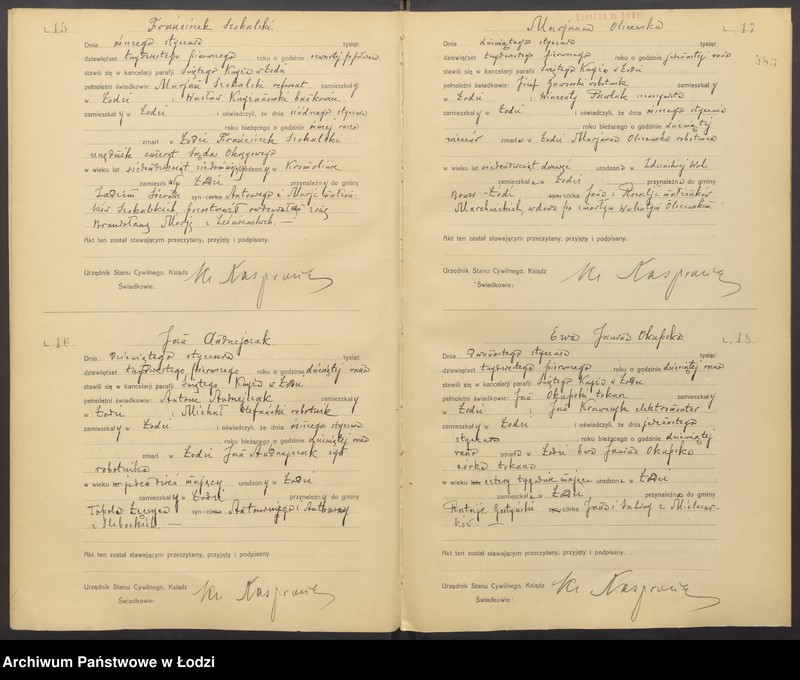 L. 15
Franciszek Szokalski
Dnia ósmego stycznia tysiąc
dziewięćset trzydziestego pierwszego roku o godzinie czwartej popołudn.
stawili się w kancelarji parafji Świętego Krzyża w Łodzi
pełnoletni świadkowie: Marjan Szokalski referent zamieszkały
w Łodzi i Wacław bankowiec
zamieszkały w Łodzi i oświadczyli, że dnia siódmego stycznia
roku bieżącego o godzinie ósmej rano
zmarł w Łodzi Franciszek Szokalski
urzędnik emeryt Sądu Okręgowego
w wieku lat siedemdziesiąt urodzony w
zamieszkały w Łodzi przynależny do gminy
syn-córka Antoniego i Marji małżon-
ków Szokalskich, pozostawił owdowiałą żonę
Bronisławę Marję z
Akt ten został stawającym przeczytany, przyjęty i podpisany.
Urzędnik Stanu Cywilnego, Ksiądz
Świadkowie:
L. 16
Jan Andrzejczak
Dnia dziewiątego stycznia tysiąc
dziewięćset trzydziestego pierwszego roku o godzinie dziesiątej rano
stawili się w kancelarji parafji Świętego Krzyża w Łodzi
pełnoletni świadkowie: Antoni Andrzejczak zamieszkały
w Łodzi i Michał Stefański robotnik
zamieszkały w Łodzi i oświadczyli, że dnia ósmego stycznia
roku bieżącego o godzinie dziesiątej rano
zmarł w Łodzi Jan Andrzejczak syn
robotnika
w wieku lat jeden dzień mający urodzony w Łodzi
zamieszkały w Łodzi przynależny do gminy
Topola syn-córka Antoniego i Antoniny
z
Akt ten został stawającym przeczytany, przyjęty i podpisany.
Urzędnik Stanu Cywilnego, Ksiądz
Świadkowie:
L. 17
Marjanna Olszewska
Dnia dziewiątego stycznia tysiąc
dziewięćset trzydziestego pierwszego roku o godzinie jedenastej rano
stawili się w kancelarji parafji Świętego Krzyża w Łodzi
pełnoletni świadkowie: Józef Jaworski robotnik zamieszkały
w Łodzi i Wincenty Pawlak
zamieszkały w Łodzi i oświadczyli, że dnia ósmego stycznia
roku bieżącego o godzinie dziewiątej
wieczór zmarła w Łodzi Marjanna Olszewska robotnica
w wieku lat siedemdziesiąt dziewięć urodzona w Zduńskiej Woli
zamieszkała w Łodzi przynależna do gminy
Łodzi syn-córka Jana i Rozalji małżonków
wdowa po zmarłym Walentym Olszewskim.
Akt ten został stawającym przeczytany, przyjęty i podpisany.
Urzędnik Stanu Cywilnego, Ksiądz
Świadkowie:
L. 18
Ewa Janina Okupska
Dnia dwunastego stycznia tysiąc
dziewięćset trzydziestego pierwszego roku o godzinie dziesiątej rano
stawili się w kancelarji parafji Świętego Krzyża w Łodzi
pełnoletni świadkowie: Jan Okupski tokarz zamieszkały
w Łodzi i Jan Krawczyk elektromonter
zamieszkały w Łodzi i oświadczyli, że dnia jedenastego
stycznia roku bieżącego o godzinie dziewiątej
rano zmarła w Łodzi Ewa Janina Okupska
córka tokarza
w wieku lat cztery tygodnie mająca urodzona w Łodzi
zamieszkała w Łodzi przynależna do gminy
syn-córka Jana i
Akt ten został stawającym przeczytany, przyjęty i podpisany.
Urzędnik Stanu Cywilnego, Ksiądz
Świadkowie:
Archiwum Państwowe w Łodzi